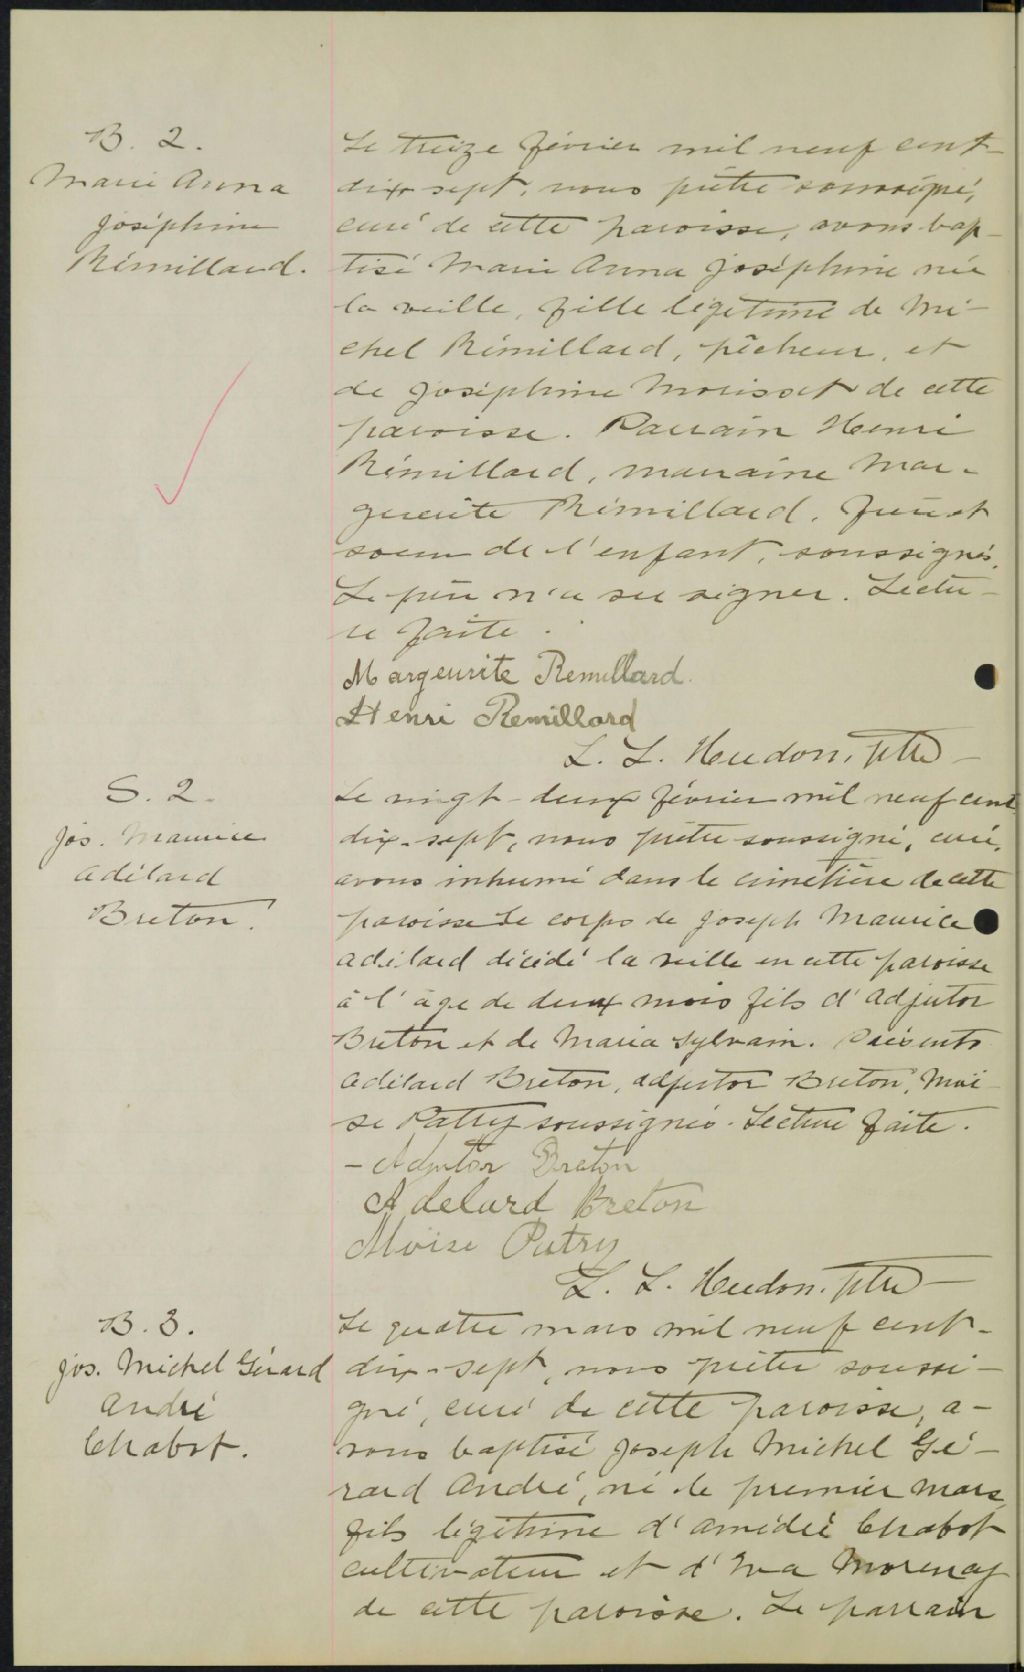 B. 2.
Marie Anna
Joséphine
Rémillard.
Le treize février mil neuf cent
dix sept, nous prêtre soussigné,
curé de cette paroisse, avons bap-
tisé Marie Anna Joséphine née
la veille, fille légitime de Mi-
chel Rémillard, pêcheur, et
de Joséphine Morisset de cette
paroisse. Parrain Henri
Rémillard, marraine Mar-
guerite Rémillard, frère et
soeur de l'enfant, soussignés.
Le père n'a su signer. Lectu-
re faite.
Margeurite Remillard.
Henri Remillard
L. L. Hudon, ptre
S. 2.
Jos. Maurice
Adélard
Breton.
Le vingt-deux février mil neuf cent
dix-sept, nous prêtre soussigné, curé,
avons inhumé dans le cimetière de cette
paroisse le corps de Joseph Maurice
Adélard décédé la veille en cette paroisse
à l'âge de deux mois fils d'Adjutor
Breton et de Maria Sylvain. Présents
Adélard Breton, Adjutor Breton, Moï
se Patry soussignés. Lecture faite.
- Adjutor Breton
Adelard Breton
Moise Patry
L. L. Hudon, ptre
B. 3.
Jos. Michel Gérard
André
Chabot.
Le quatre mars mil neuf cent-
dix-sept, nous prêtre soussi-
gné, curé de cette paroisse, a-
vons baptisé Joseph Michel Gé-
rard André, né le premier mars,
fils légitime d'Amédée Chabot
cultivateur et d'Eva Morency
de cette paroisse. Le parrain